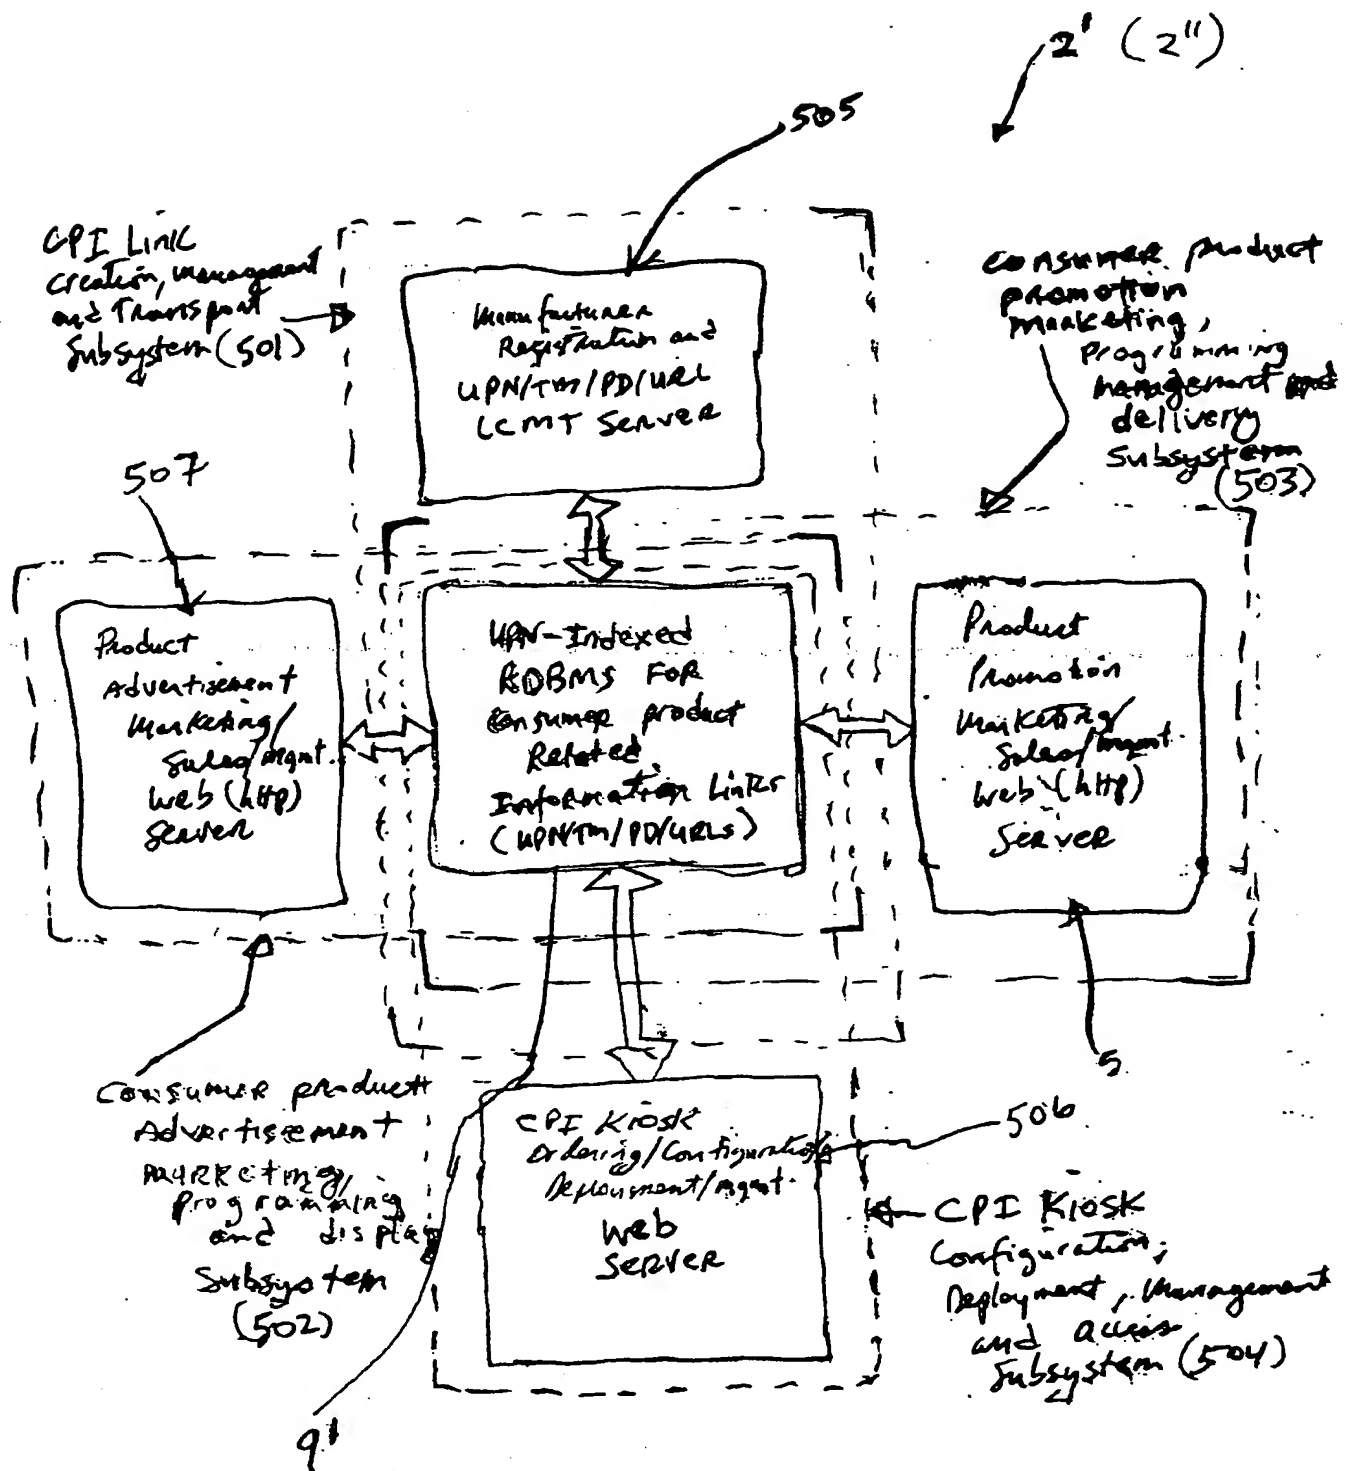 2' (2")
505
CPI Link
Creation, Management
and Transport
Subsystem (501)
Manufacturer
Registration and
UPN/TM/PD/URL
LCMT Server
Consumer product
promotion
marketing,
Programming
management and
delivery
Subsystem
(503)
507
Product
Advertisement
Marketing/
Sales/Mgmt.
Web (http)
Server
UPN-Indexed
RDBMS FOR
Consumer product
Related
Information Links
(UPN/TM/PD/URLs)
Product
Promotion
Marketing/
Sales/Mgmt.
Web (http)
Server
5
Consumer product
Advertisement
marketing,
programming
and display
Subsystem
(502)
CPI Kiosk
Ordering/Configuration
Deployment/Mgmt.
Web
Server
506
CPI Kiosk
Configuration,
Deployment, Management
and access
Subsystem (504)
9'